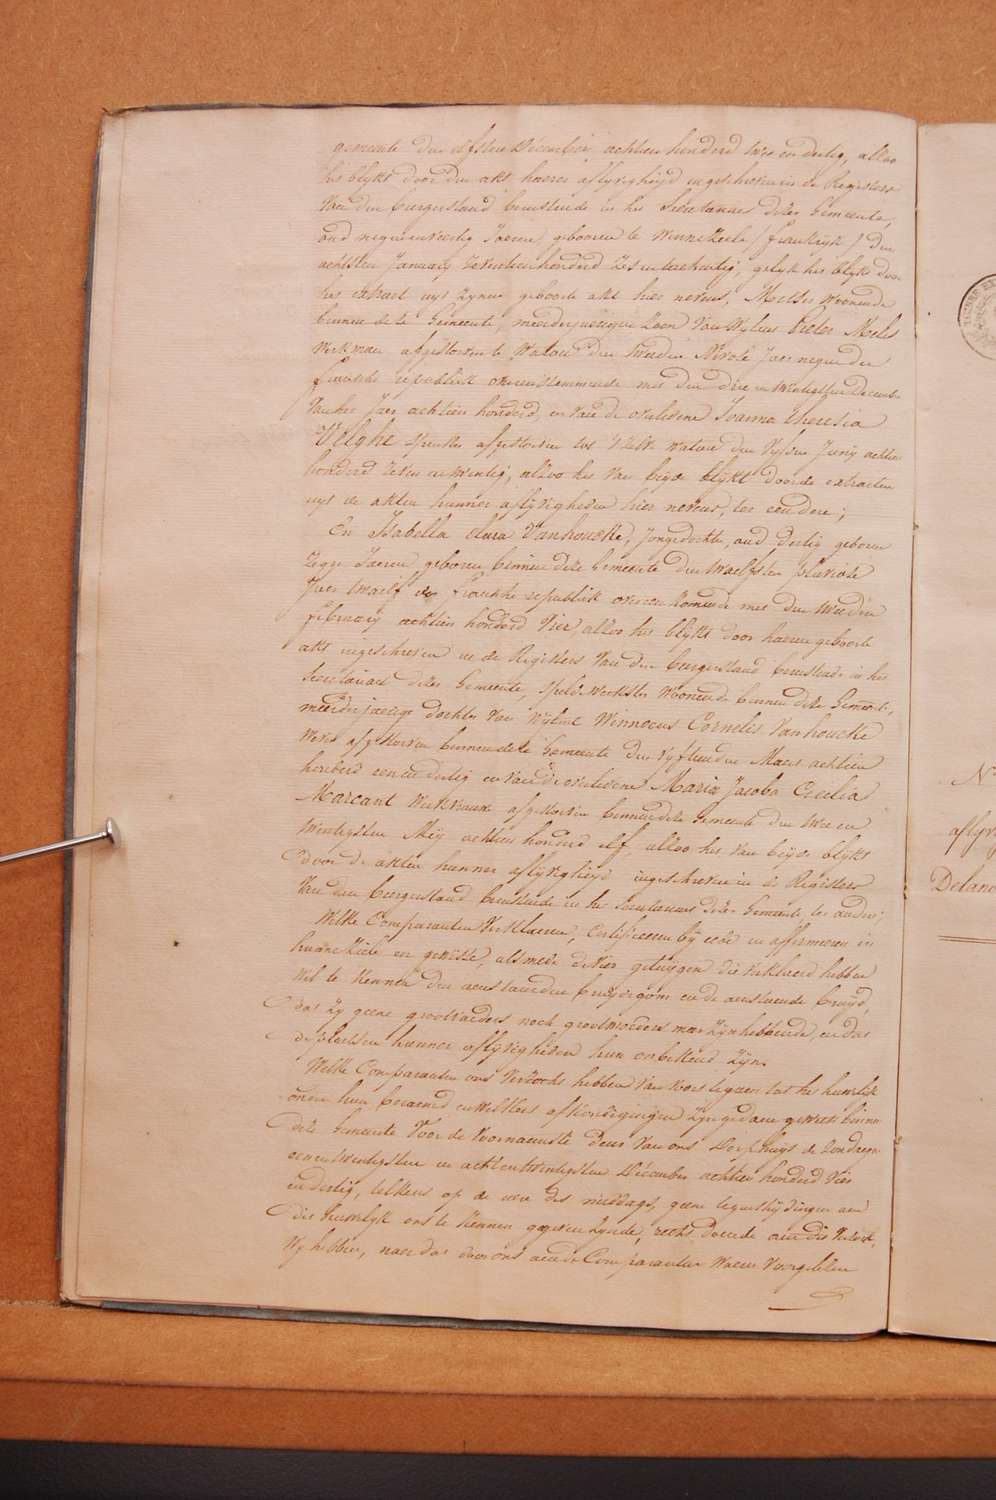 gemeente den elfsten December achtien honderd twee en dertig, alzoo
het blijkt door den akt haerer aflyvigheyd ingeschreven in de Registers
van den burgerstand berustende in het Secretariaet dezer Gemeente,
oud negen en veertig Jaeren, gebooren te Winnezeele / frankryk / den
achtsten January zeventien honderd zes en tachentig, gelyk het blykt door
het extract uyt zynen geboorte akt hier nevens, woonende
binnen deze Gemeente, meerderjaerigen zoon van wylent Pieter
Werkman afgestorven te Watou den tweeden Nivose Jaer negen der
fransche republiek overeenstemmende met den drie en twintigsten December
van het Jaer achtien honderd, en van de overledene Joanna Theresia
Velghe afgestorven tot 't zelve Watou den vyfden Juny achtien
honderd zeven en twintig, alzoo het van beyde blykt door de extracten
uyt de akten hunner aflyvigheden hier nevens, ter eendere;
En Isabella Clara Vanhoucke, Jongedochter, oud dertig geboren
zegge Jaeren, geboren binnen deze Gemeente den twaelfsten pluviose
Jaer twaelf der Fransche republiek overeenkomende met den tweeden
February achtien honderd vier, alzoo het blykt door haeren geboorte
akt ingeschreven in de Registers van den burgerstand berustende in het
Secretariaet dezer Gemeente, spelde werkster woonende binnen deze Gemeente,
meerderjaerige dochter van wylent Winnocus Cornelis Vanhoucke
Wever afgestorven binnen deze Gemeente den vyftienden Maert achtien
honderd een en dertig en van de overledene Maria Jacoba Cecilia
Marcant Werkvrauw afgestorven binnen deze Gemeente den twee en
twintigsten Mey achtien honderd elf, alzoo het van beyde blykt
door de akten hunner aflyvigheyd ingeschreven in de Registers
van den burgerstand berustende in het Secretariaet dezer Gemeente, ter andere;
Welke Comparanten verklaeren, certificeeren by eede en affirmeeren in
hunne ziele en gewisse, alsmede de vier getuygen die verklaerd hebben
wel te kennen den aenstaenden bruydegom en de aenstaende bruyd,
dat zy geene grootvaeders noch grootmoeders meer zyn hebbende, en dat
de plaetsen hunner aflyvigheden hun onbekend zyn.
Welke Comparanten ons verzocht hebben van voorts te gaen tot het huwelyk
onder hun beraemd en welkers afkondigingen zyn gedaen geweest binnen
deze Gemeente voor de voornaemste deur van ons Dorphuys de zondagen
een en twintigsten en acht en twintigsten December achtien honderd vier
en dertig, telkens op de uere des middags, geene tegenstrydingen aen
dit huwelyk ons te kennen gegeven zynde, recht doende aen dit verzoek,
Wy hebben, naer dat door ons aen de Comparanten waeren voorgelezen
Delanc